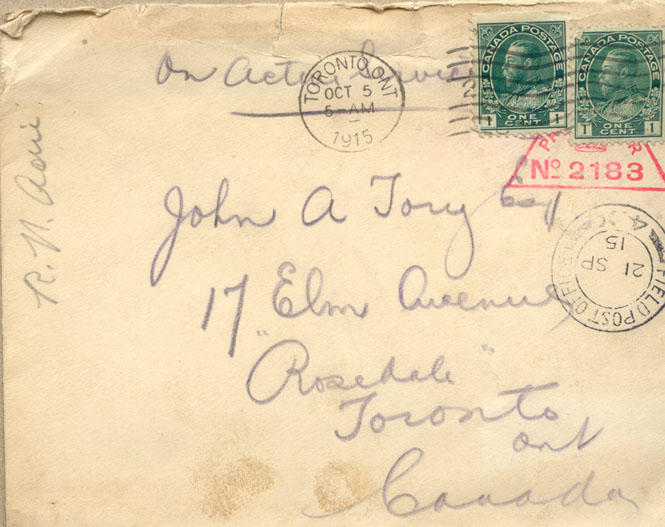 On Active Service
TORONTO, ONT.
OCT 5
5-AM
1915
CANADA POSTAGE
1 ONE CENT 1
CANADA POSTAGE
1 ONE CENT 1
No 2183
John A Tory Esq
17 Elm Avenue
"Rosedale"
Toronto
Ont
Canada
FIELD POST OFFICE
21 SP
15
R. N.